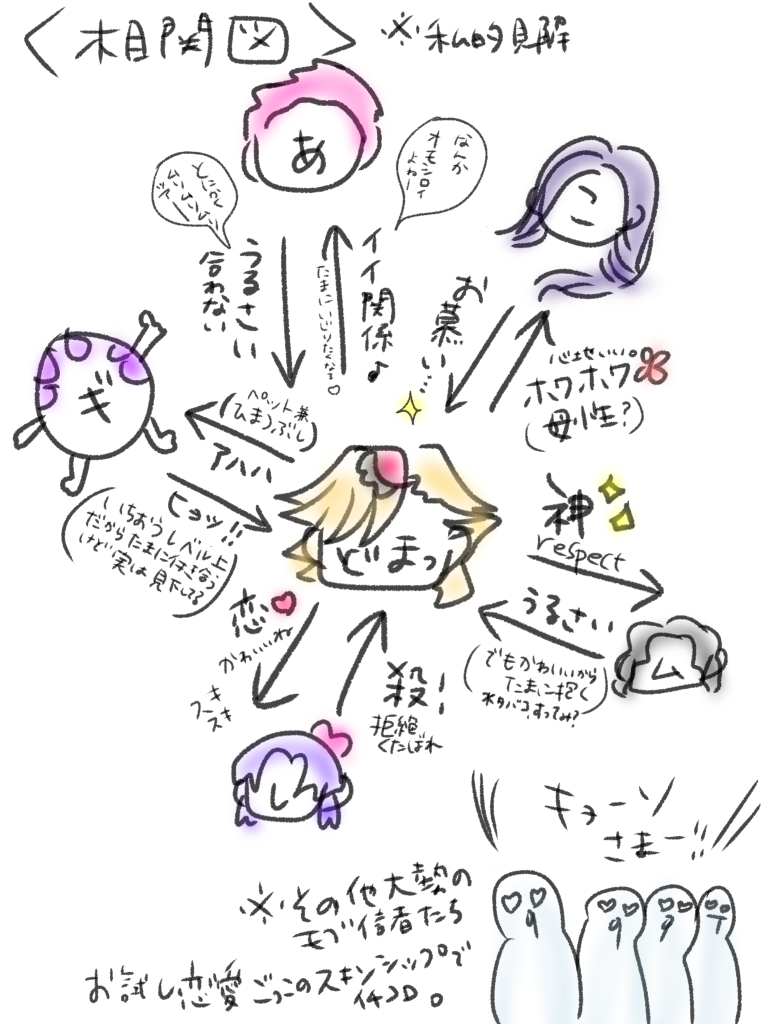 <相関図>
※私的見解
あ
なんか
オモシロイ
よねー
とにかく
ムリムリムリ
うるさい
合わない
たまにいじりたくなる♡
イイ関係♪
お慕い…
こ
心地いい。
ホワホワ
(母性?)
ギ
(ペット兼
ひまつぶし)
アハハ
ヒョッ!!
(いちおうレベル上
だからたまに付き合う
けど実は見下してる)
どまっ
神
respect
うるさい
(でもかわいいから
たまに抱く
水タバコすってみ?)
ム
恋
かわいいね
スキ
スキ
殺!
拒絶
くたばれ
し
キョーソ
さまー!!
※その他大勢の
モブ信者たち
お試し恋愛ごっこのスキンシップで
イチコロ。